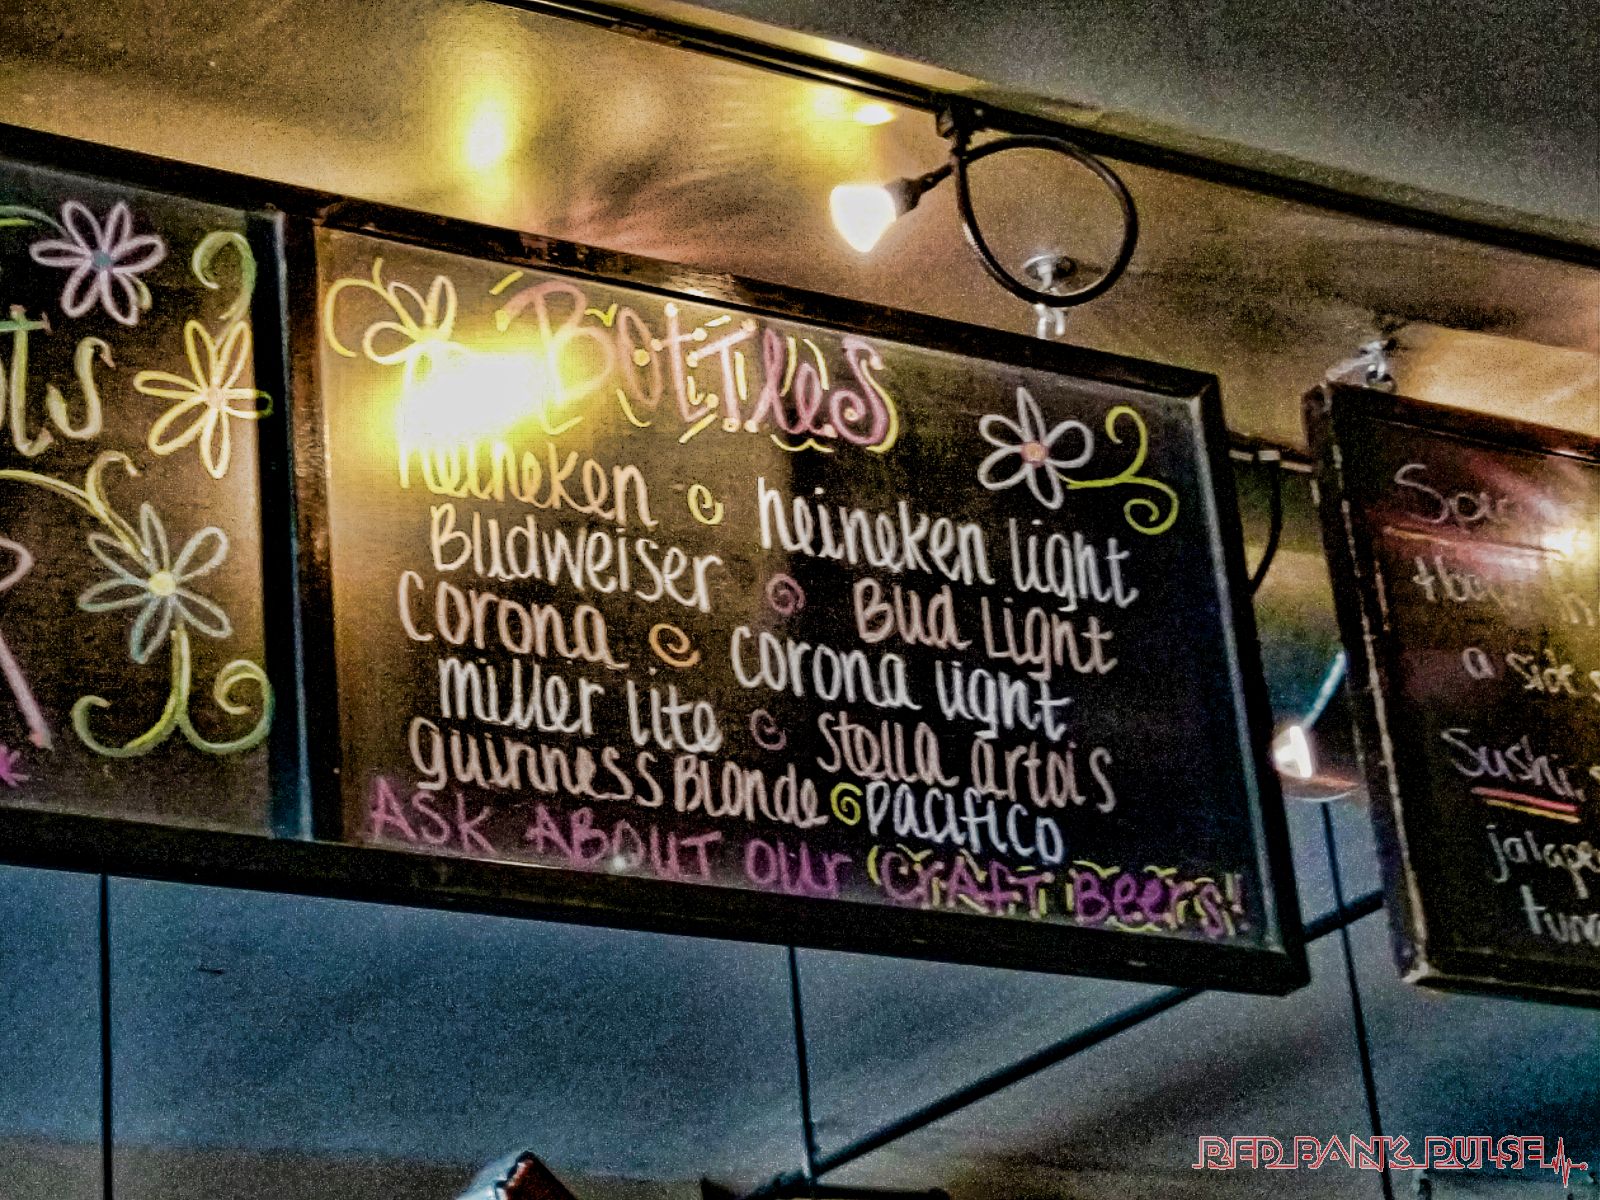 ts
Bottles
heineken heineken light
Budweiser Bud Light
corona corona light
miller lite stella artois
guinness Blonde pacifico
ASK ABOUT our CRAFT Beers!
a side
Sushi
RED BANK PULSE